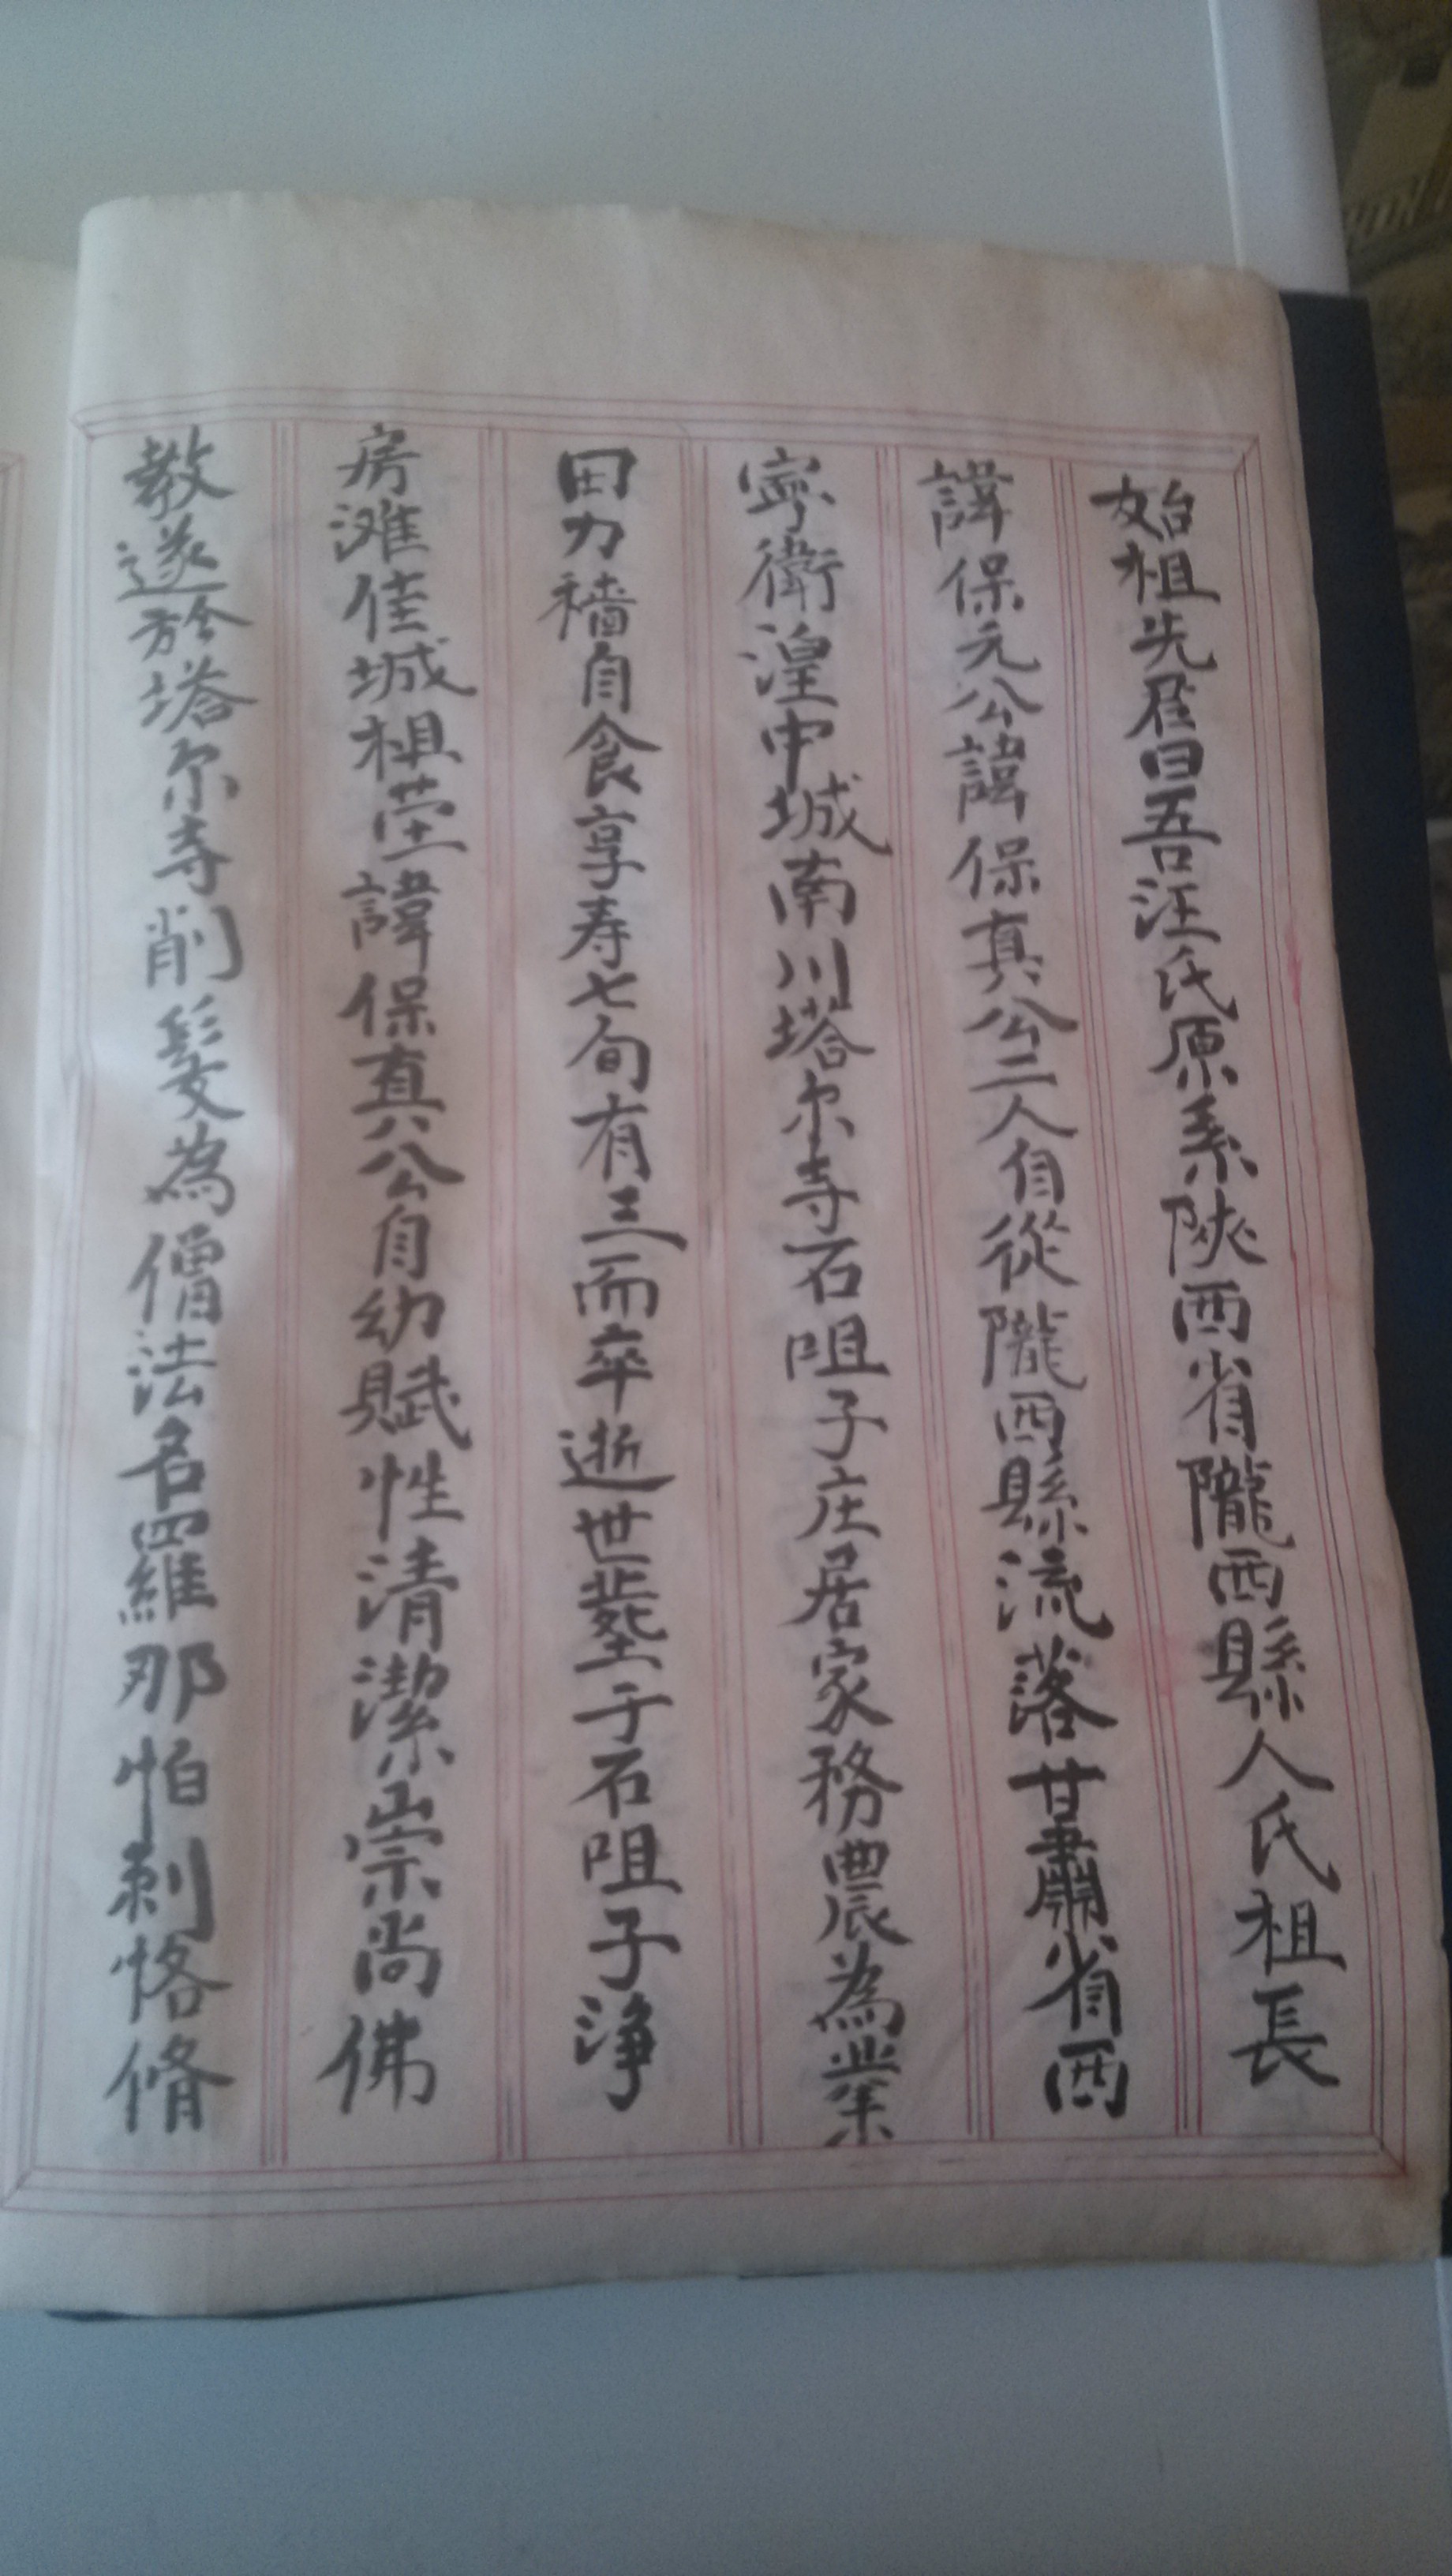 始祖先居曰吾汪氏原系陝西省隴西縣人氏祖長
諱保元公諱保真公二人自從隴西縣流落甘肅省西
寧衛湟中城南川塔尔寺石咀子庄居家務農為業
田力穑自食享寿七旬有三而卒逝世塟于石咀子净
房滩佳城祖茔諱保真公自幼賦性清潔崇尚佛
教遂於塔尔寺削髮為僧法名羅那怕剌恪脩